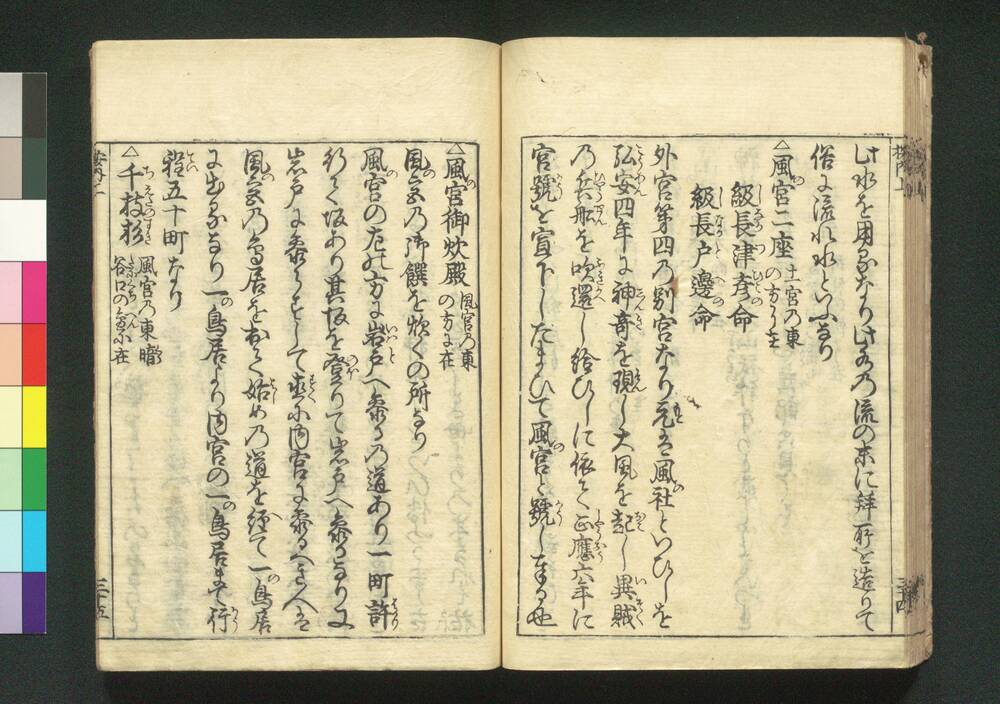 此水を用るなり此水乃流の末に拜所を造りて
俗に流れ水といふなり
△風宮二座 土宮の東の方に在
級長津彦命
級長戸邊命
外宮第四乃別宮なり元は風社といひしを
弘安四年に神奇を現し大風を起し異賊
乃兵船を吹還し給ひしに依て正應六年に
官號を宣下したまひて風宮と號し奉る也
△風宮御炊殿 風宮乃東の方に在
風宮乃御饌を炊くの所なり
風宮の左の方に岩戸へ參る乃道あり一町許
行て坂あり其坂を登りて岩戸へ參るなり又
岩戸に參らずして直に内宮に參るべき人は
風宮乃鳥居を出て始め乃道を經て一鳥居
に出るなり一鳥居より内宮の一鳥居まで行
程五十町なり
△千枝杉 風宮乃東 谷口の に在